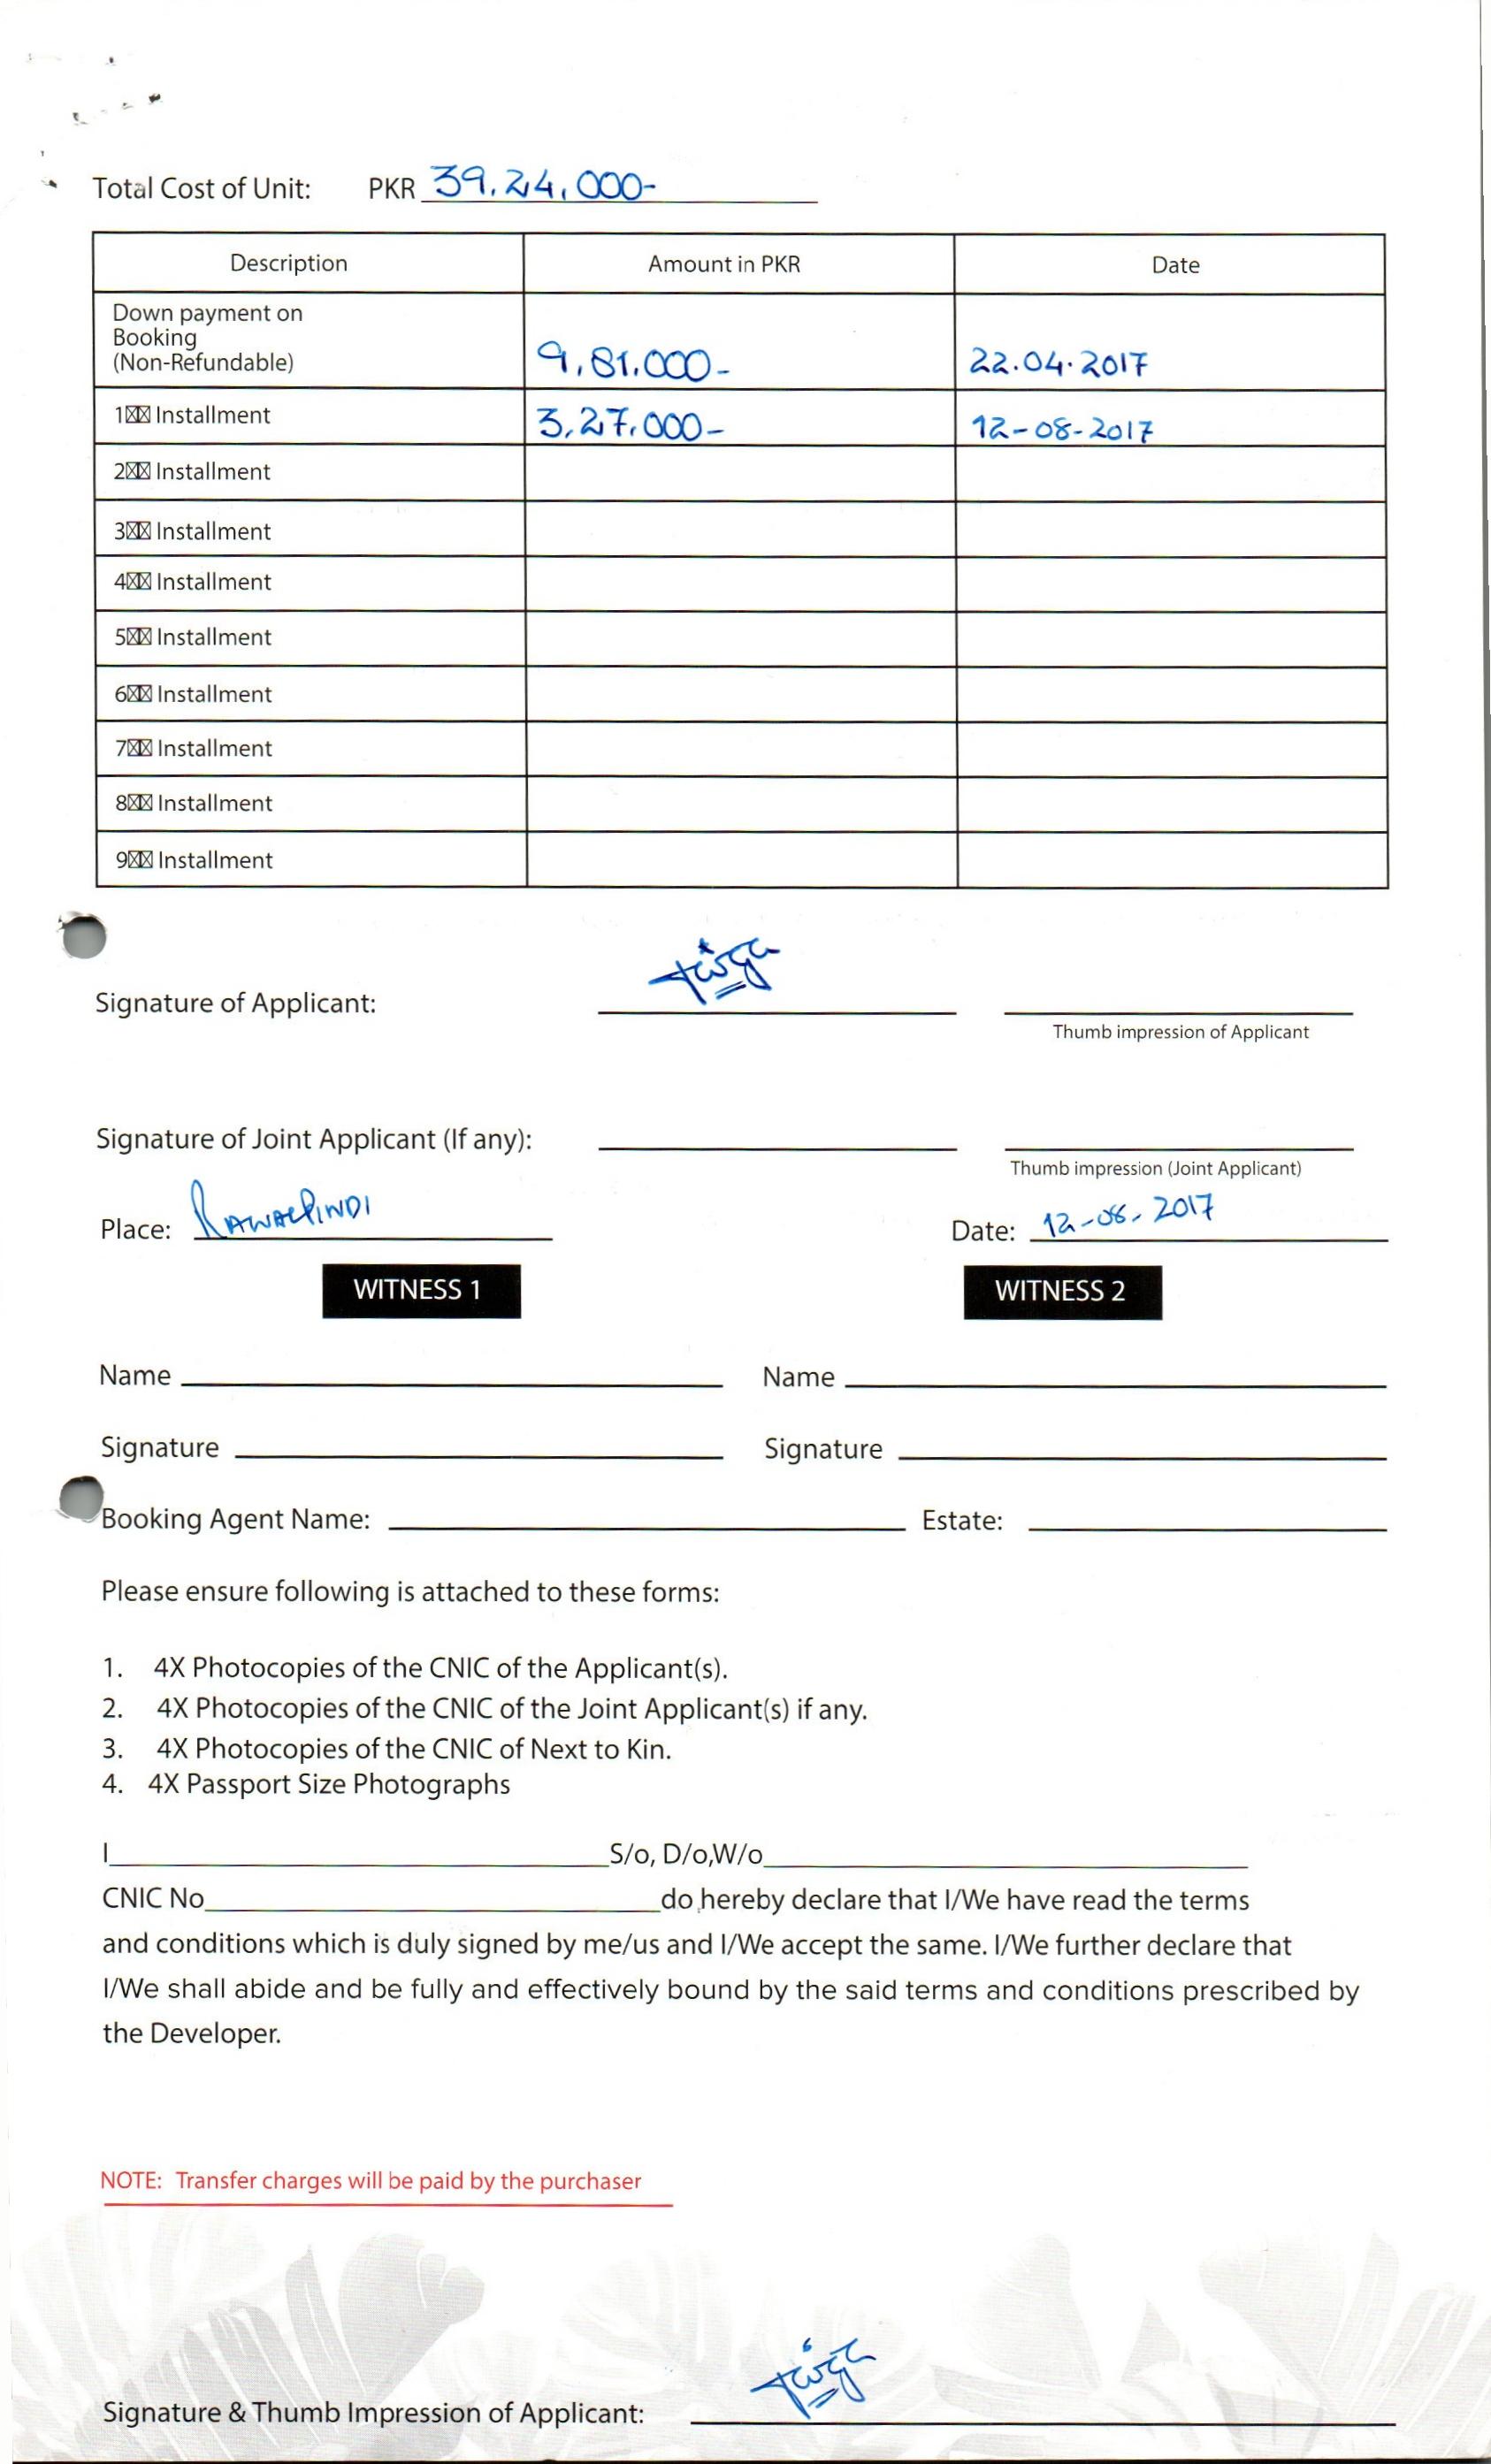 Total Cost of Unit: PKR 39.24,000-
Description Amount in PKR Date
Down payment on
Booking
(Non-Refundable) 9,81,000- 22.04.2017
1☒☒ Installment 3,27,000- 12-08-2017
2☒☒ Installment
3☒☒ Installment
4☒☒ Installment
5☒☒ Installment
6☒☒ Installment
7☒☒ Installment
8☒☒ Installment
9☒☒ Installment
Signature of Applicant:
Thumb impression of Applicant
Signature of Joint Applicant (If any):
Thumb impression (Joint Applicant)
Place: RAWALPINDI Date: 12-08-2017
WITNESS 1 WITNESS 2
Name Name
Signature Signature
Booking Agent Name: Estate:
Please ensure following is attached to these forms:
1. 4X Photocopies of the CNIC of the Applicant(s).
2. 4X Photocopies of the CNIC of the Joint Applicant(s) if any.
3. 4X Photocopies of the CNIC of Next to Kin.
4. 4X Passport Size Photographs
I S/o, D/o,W/o
CNIC No do hereby declare that I/We have read the terms
and conditions which is duly signed by me/us and I/We accept the same. I/We further declare that
I/We shall abide and be fully and effectively bound by the said terms and conditions prescribed by
the Developer.
NOTE: Transfer charges will be paid by the purchaser
Signature & Thumb Impression of Applicant: